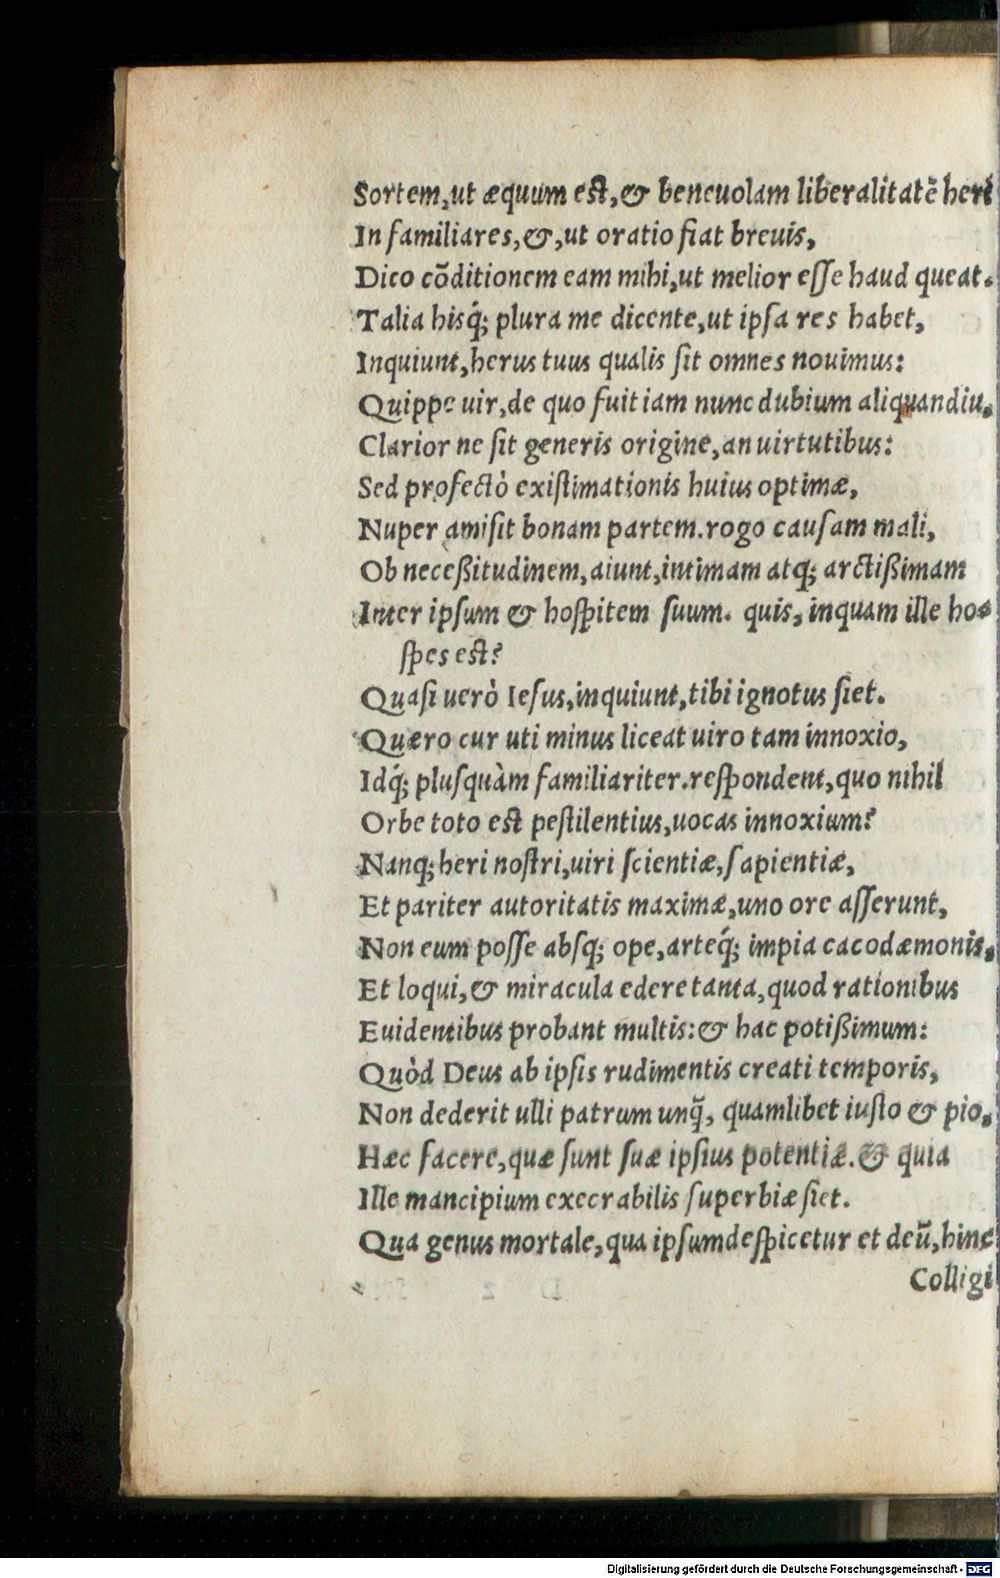 Sortem, ut æquum est, & beneuolam liberalitatẽ heri
In familiares, &, ut oratio fiat breuis,
Dico cõditionem eam mihi, ut melior esse haud queat.
Talia hisq́; plura me dicente, ut ipsa res habet,
Inquiunt, herus tuus qualis sit omnes nouimus:
Quippe uir, de quo fuit iam nunc dubium aliquandiu,
Clarior ne sit generis origine, an uirtutibus:
Sed profectò existimationis huius optimæ,
Nuper amisit bonam partem. rogo causam mali,
Ob neceßitudinem, aiunt, intimam atq; arctißimam
Inter ipsum & hospitem suum. quis, inquam ille ho-
spes est?
Quasi uerò Iesus, inquiunt, tibi ignotus siet.
Quæro cur uti minus liceat uiro tam innoxio,
Idq́; plusquàm familiariter. respondent, quo nihil
Orbe toto est pestilentius, uocas innoxium?
Nanq; heri nostri, uiri scientiæ, sapientiæ,
Et pariter autoritatis maximæ, uno ore asserunt,
Non eum posse absq; ope, arteq́; impia cacodæmonis,
Et loqui, & miracula edere tanta, quod rationibus
Euidentibus probant multis: & hac potißimum:
Quòd Deus ab ipsis rudimentis creati temporis,
Non dederit ulli patrum unq̃, quamlibet iusto & pio,
Hæc facere, quæ sunt suæ ipsius potentiæ. & quia
Ille mancipium execrabilis superbiæ siet.
Qua genus mortale, qua ipsum despicetur et deũ, hinc
Colligi
Digitalisierung gefördert durch die Deutsche Forschungsgemeinschaft - DFG